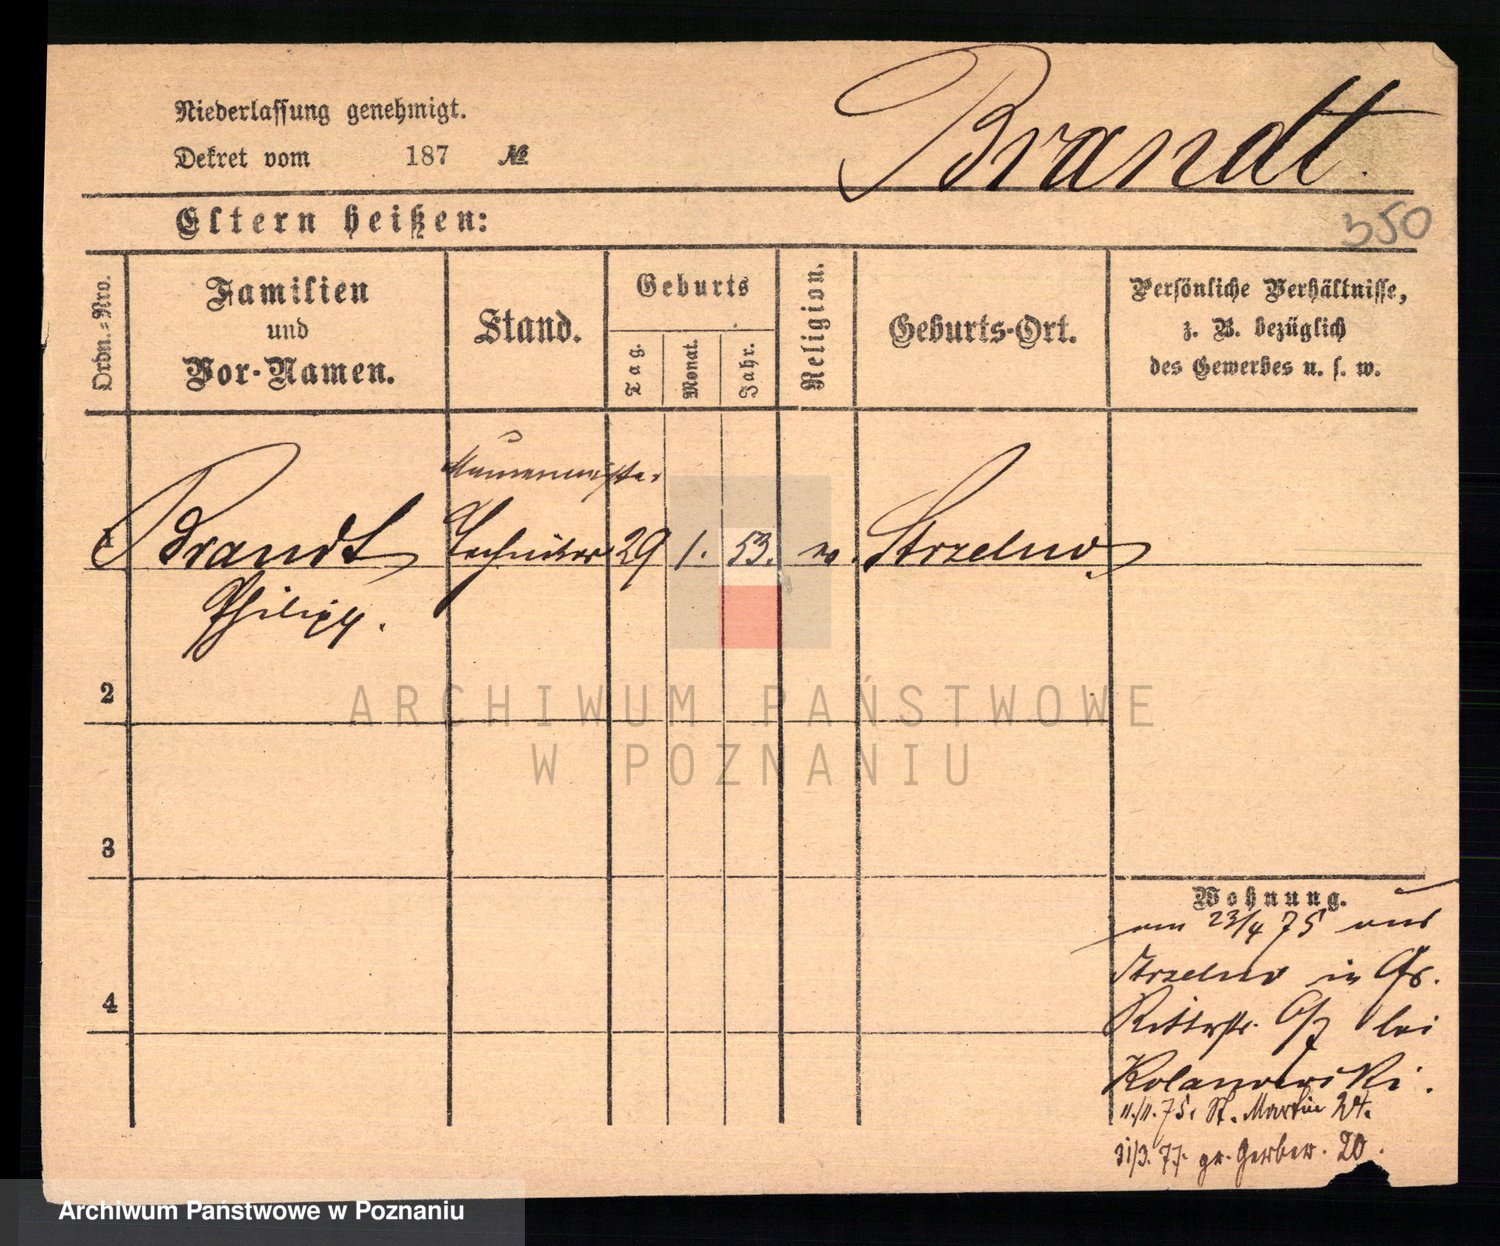 Niederlassung genehmigt.
Dekret vom 187 №
Brandt.
350
Eltern heißen:
Ordn.=Nro.
Familien
und
Vor-Namen.
Stand.
Geburts
Tag.
Monat.
Jahr.
Religion.
Geburts-Ort.
Persönliche Verhältnisse,
z. B. bezüglich
des Gewerbes u. s. w.
Maurermeister
1 Brandt Techniker 29 1. 53. Strzelno
Philipp.
2
3
4
Wohnung.
am 23/4 75 aus
Strzelno in
Ritterstr. bei
Kolanowski.
11/11. 75. St. Martin 24.
31/3. 77. gr. Gerber. 20.
ARCHIWUM PAŃSTWOWE
W POZNANIU
Archiwum Państwowe w Poznaniu